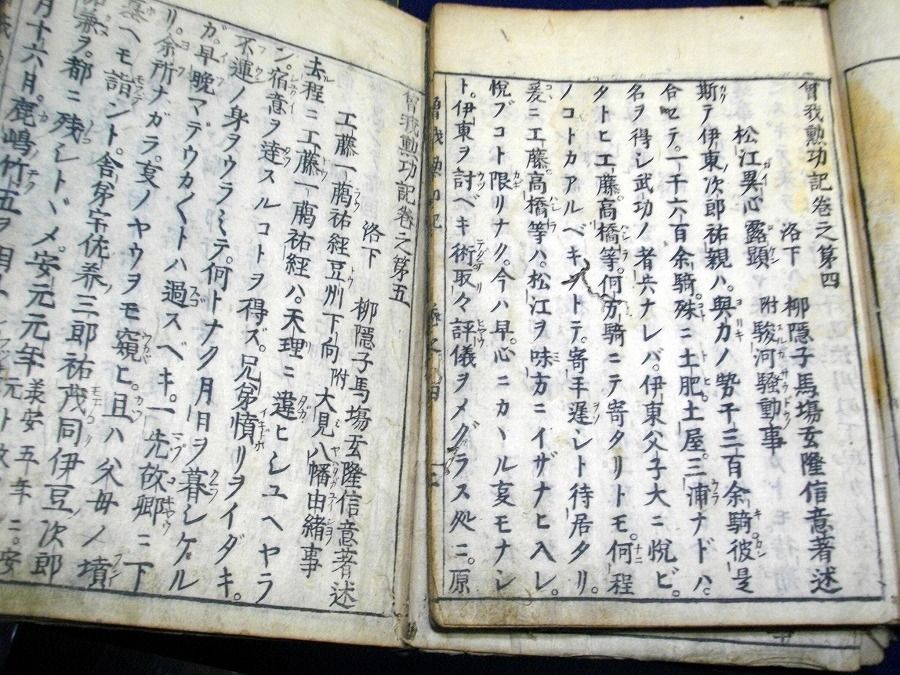 曽我勲功記巻之第四
洛下 柳隠子馬場玄隆信意著述
松江異心露顕 附駿河騒動事
斯テ伊東次郎祐親ハ。與力ノ勢千三百余騎彼是
合セテ。一千六百余騎殊ニ土肥土屋。三浦ナドハ。
名ヲ得シ武功ノ者共ナレバ。伊東父子大ニ悦ビ。
タトヒ工藤高橋等。何万騎ニテ寄タリトモ。何程
ノコトカアルベキトテ。寄手遅シト待居タリ。
爰ニ工藤高橋等ハ。松江ヲ味方ニイザナヒ入レ。
悦ブコト限リナク。今ハ早。心ニカヽル亥モナシ
ト。伊東ヲ討ベキ術取々評儀ヲメグラス処ニ。原
曽我勲功記
曽我勲功記巻之第五
洛下 柳隠子馬場玄隆信意著述
工藤一萬祐経豆州下向 附大見八幡由緒事
去程ニ工藤一萬祐経ハ。天理ニ違ヒシユヘヤラ
ン。宿意ヲ達スルコトヲ得ズ。兄弟憤リヲイダキ。
不運ノ身ヲウラミテ。何トナク月日ヲ暮シケル
ガ。早晩マデウカ〱トハ過スベキ。一先故郷ニ下
リ。余所ナガラ。亥ノヤウヲモ窺ヒ。且ハ父母ノ墳
墓ヘモ詣ント。舎弟宇佐美三郎祐茂同伊豆次郎
祐兼ヲ。都ニ残シトヾメ。安元元年
月十六月。鹿嶋竹五ヲ相